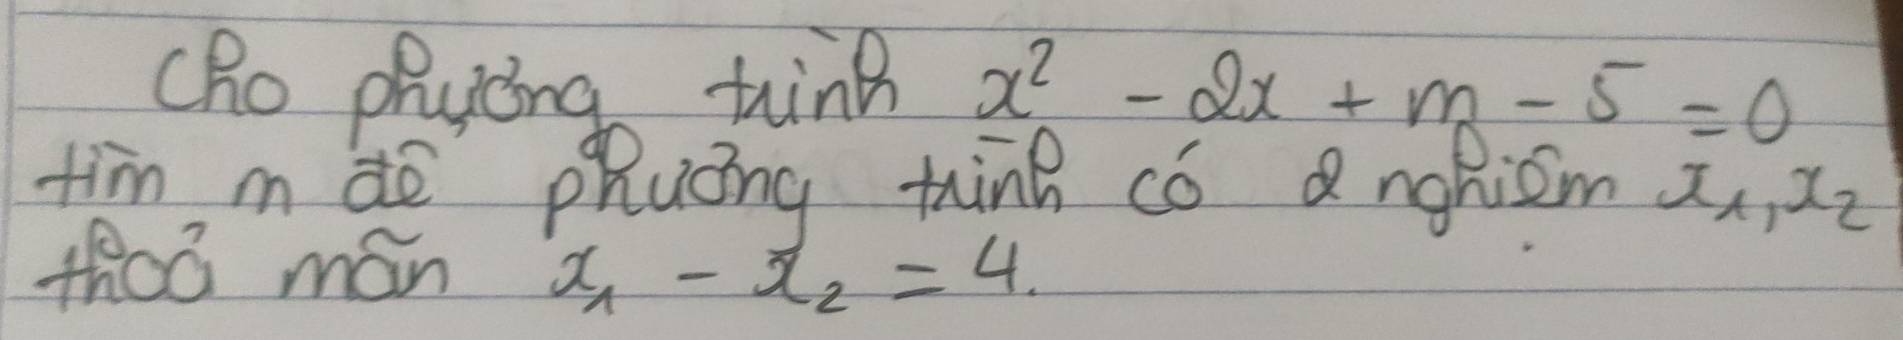 Cho phương trình x² - 2x + m - 5 = 0
tìm m để phương trình có 2 nghiệm x₁, x₂
thoả mãn x₁ - x₂ = 4.